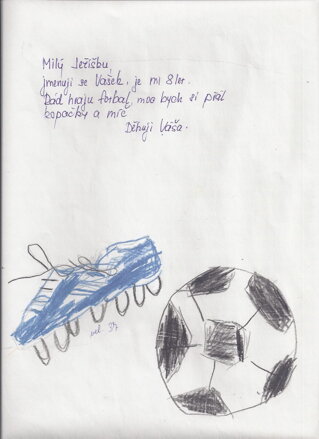 Milý Ježíšku,
jmenuji se Vašek, je mi 8 let.
Rád hraju fotbal, moc bych si přál
kopačky a míč
Děkuji Váša.
vel. 37